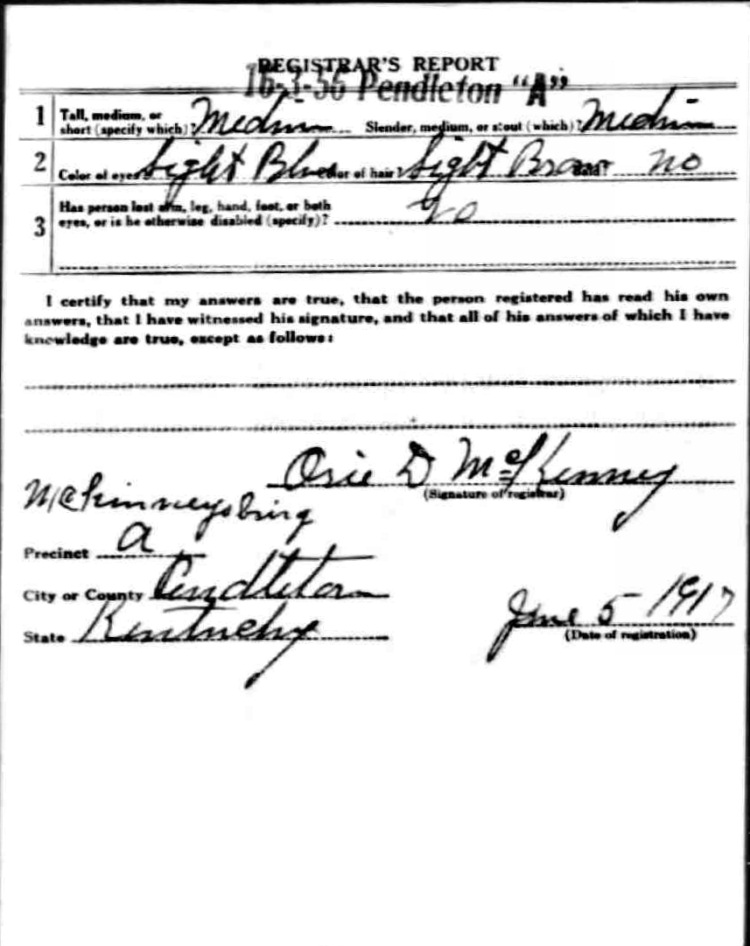 REGISTRAR'S REPORT
16-3-56 Pendleton "A"
1 Tall, medium, or short (specify which)? Medium Slender, medium, or stout (which)? Medium
2 Color of eyes Light Blue Color of hair? Light Brown Bald? no
3 Has person lost arm, leg, hand, foot, or both
eyes, or is he otherwise disabled (specify)? No
I certify that my answers are true, that the person registered has read his own
answers, that I have witnessed his signature, and that all of his answers of which I have
knowledge are true, except as follows:
Osie D McKenney
(Signature of registrar)
McKinneysburg
Precinct A
City or County Pendleton
State Kentucky
June 5 1917
(Date of registration)